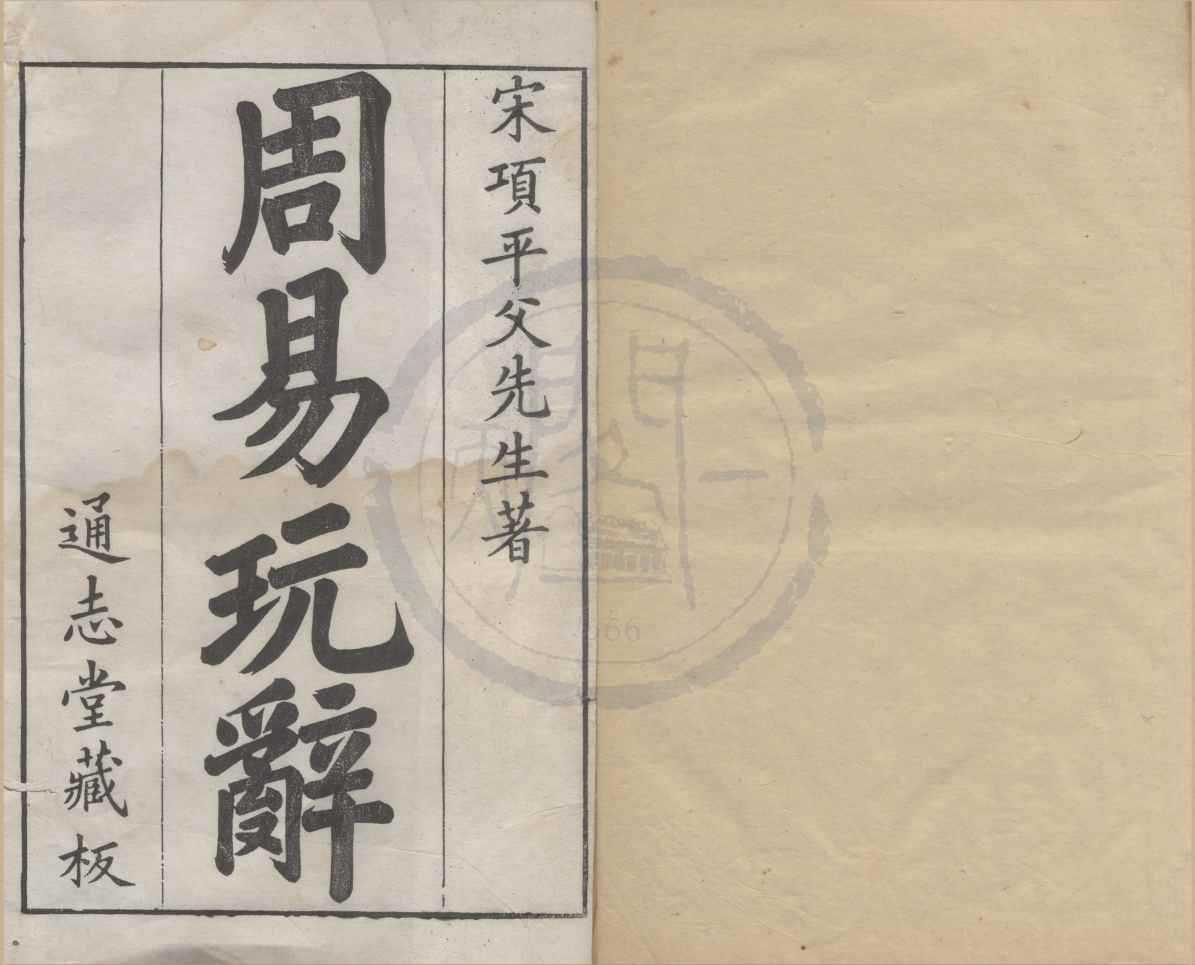 宋項平父先生著
周易玩辭
通志堂藏板